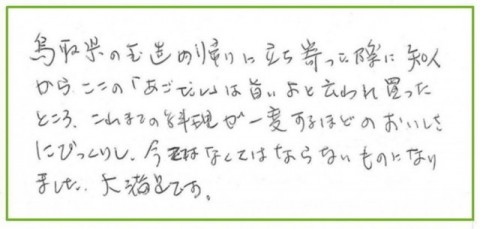 鳥取県の玉造の帰りに立ち寄った際に知人
からここの「あごだし」は旨いよと云われ買った
ところ、これまでの料理が一変するほどのおいしさ
にびっくりし、今ではなくてはならないものになり
ました。大満足です。